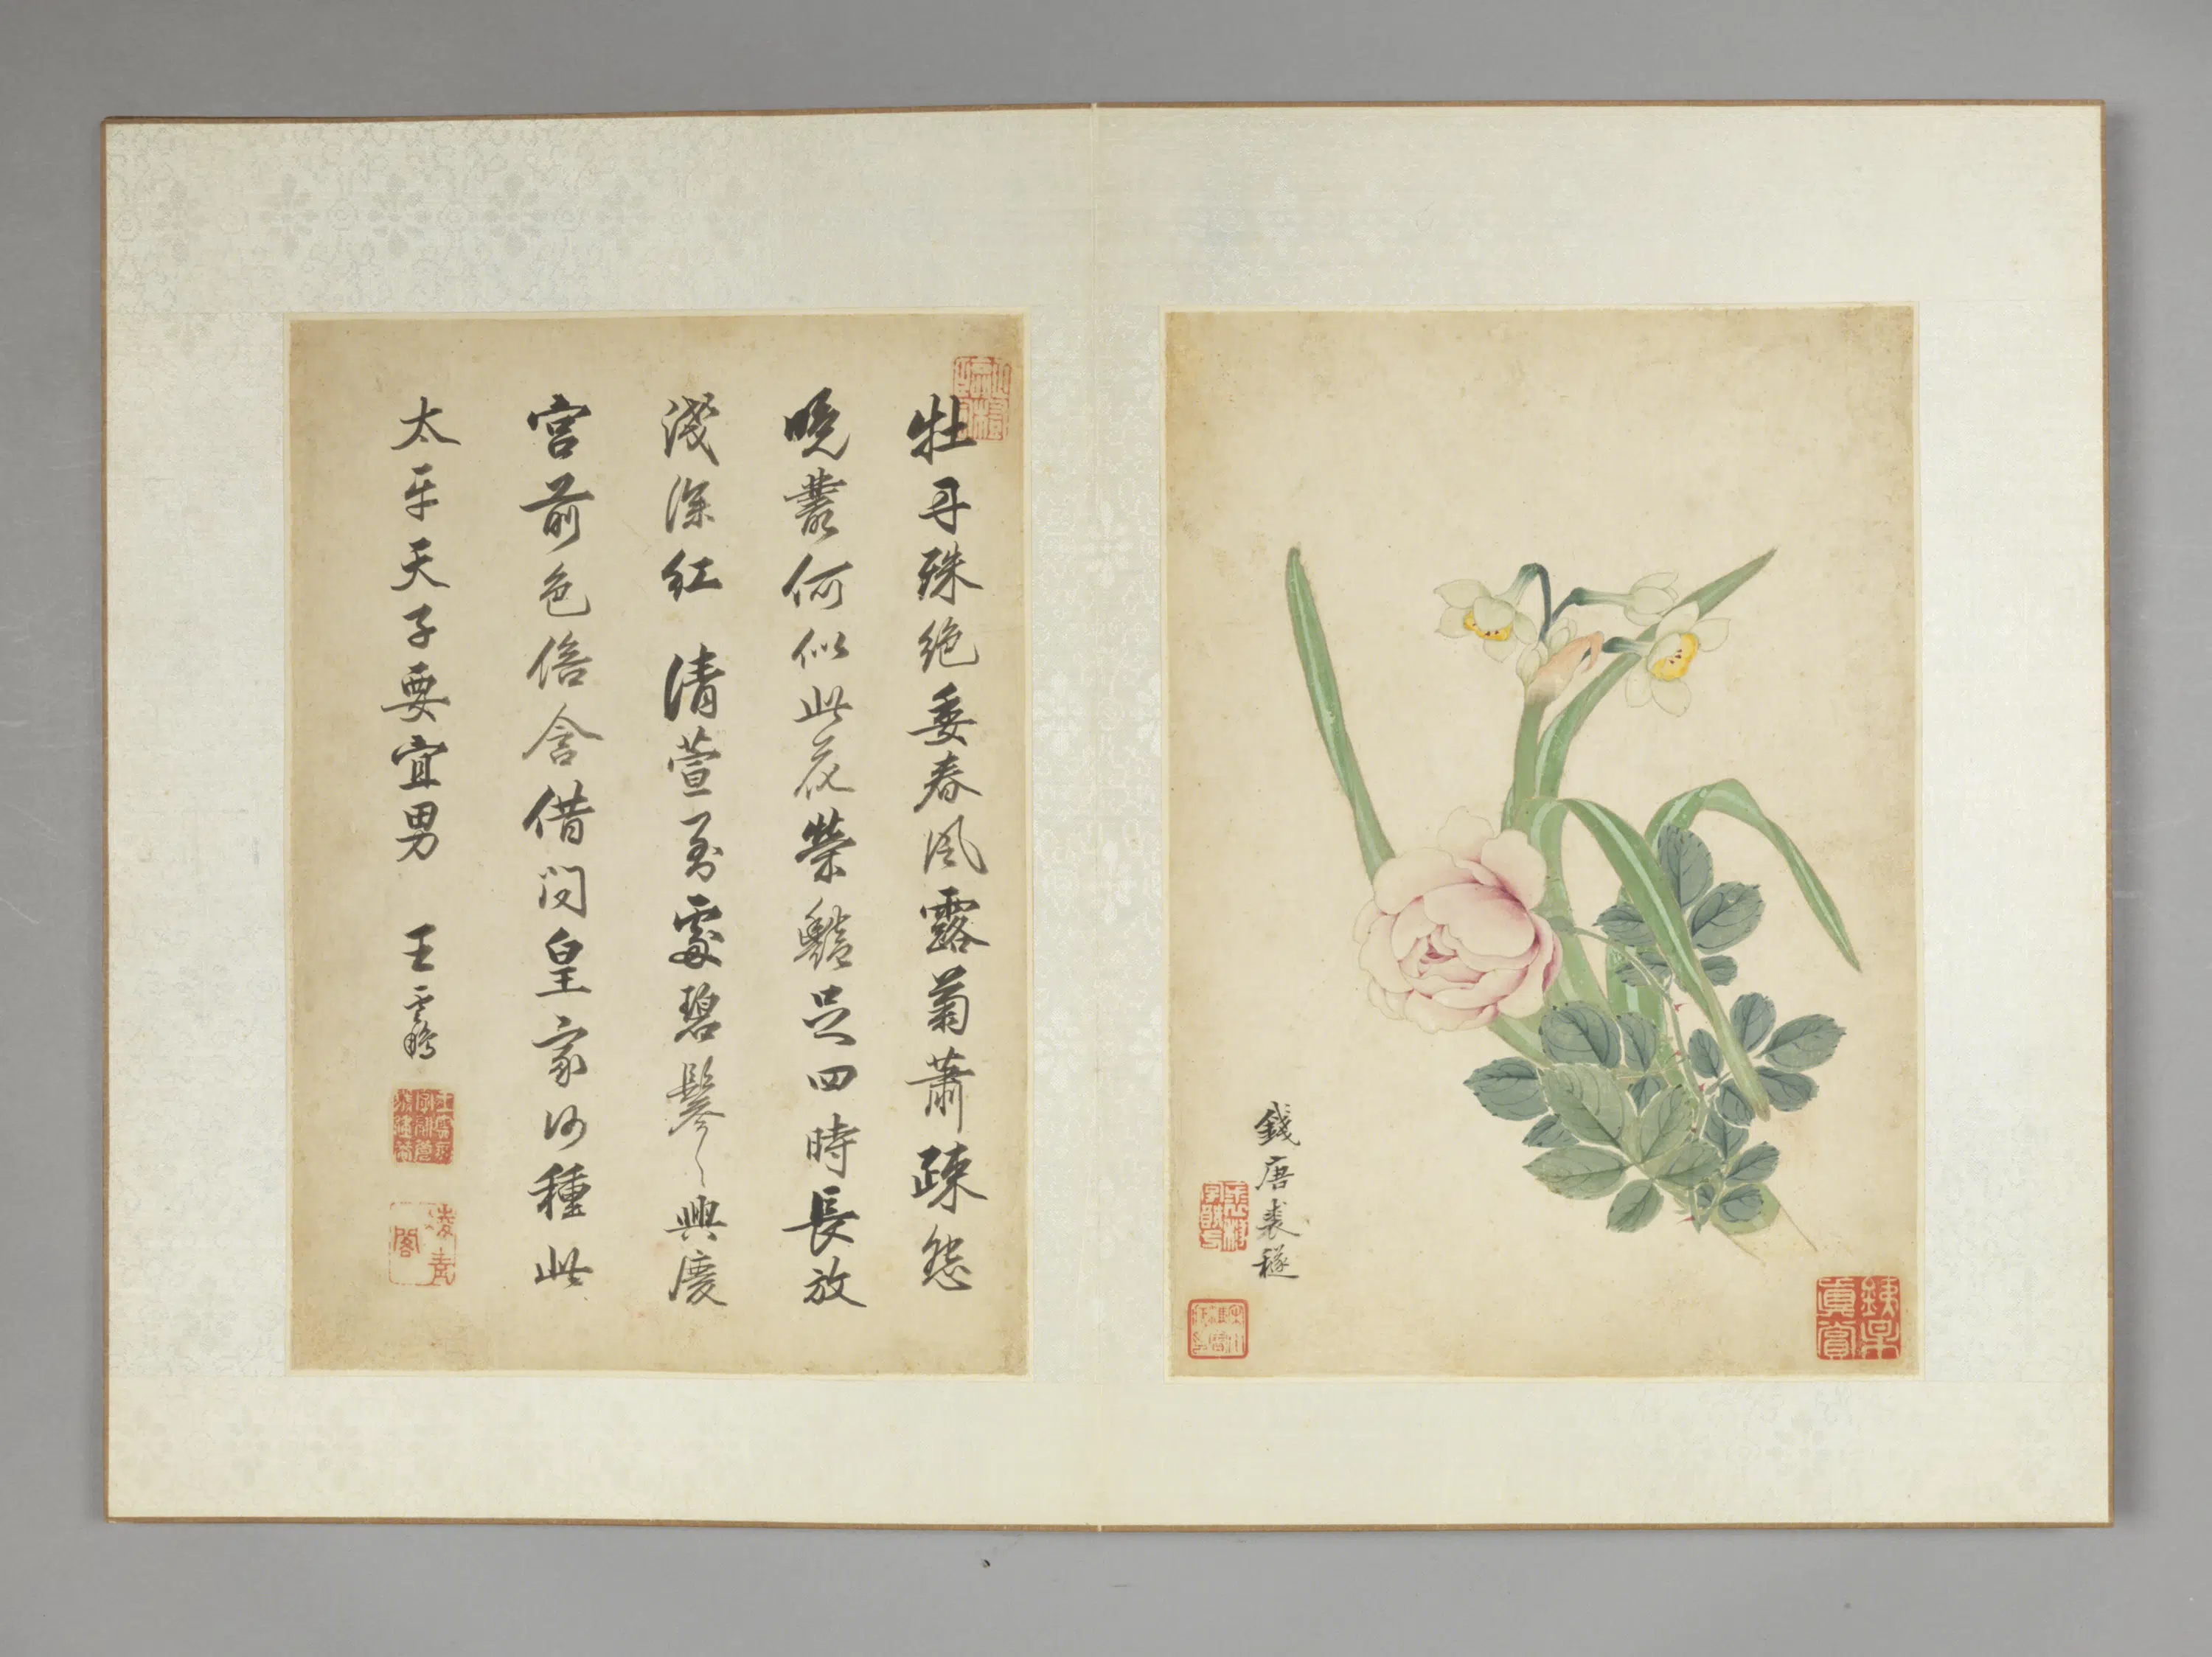 錢唐裘穟
牡丹殊絕委春風露菊蕭疎怨
晚叢何似此花榮艷足四時長放
淺深紅 清萱到處碧鬖〻興慶
宮前色倍含借問皇家何種此
太平天子要宜男 王